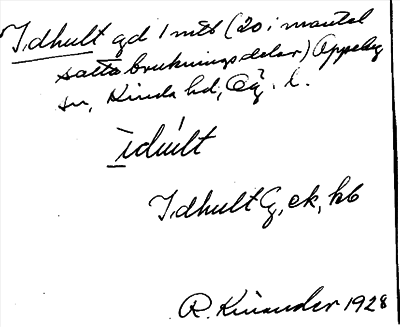 Idhult gd 1 mtl (20 i mantal
satta brukningsdelar) Oppeby
sn, Kinda hd, Ög. l.
idúlt
Idhult G, ek, hb
R. Kinander 1928